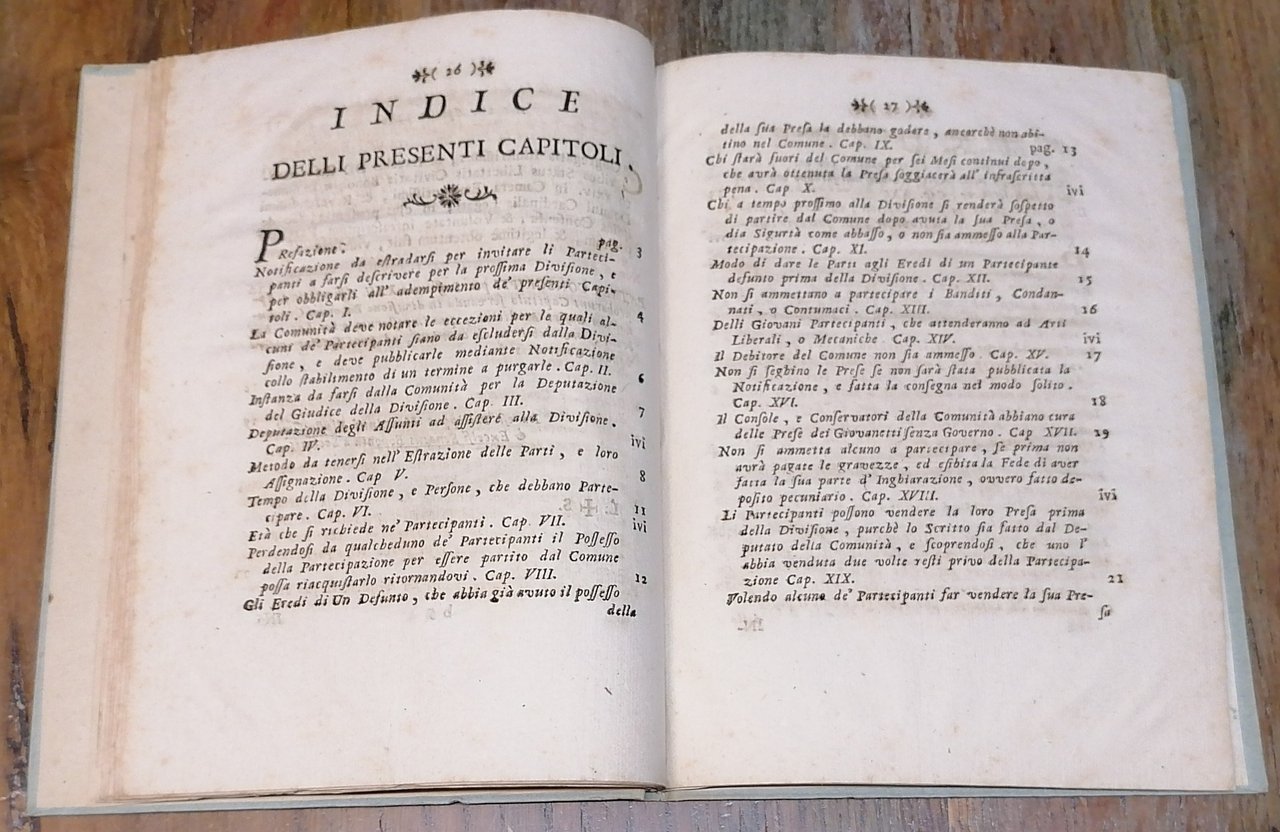 ( 26 )
INDICE
DELLI PRESENTI CAPITOLI.
PRefazione. pag. 3
Notificazione da estradarsi per invitare li Parteci-
panti a farsi descrivere per la prossima Divisione, e
per obbligarli all' adempimento de' presenti Capi-
toli. Cap. I. 4
La Comunità deve notare le eccezioni per le quali al-
cuni de' Partecipanti siano da escludersi dalla Divi-
sione, e deve pubblicarle mediante Notificazione
collo stabilimento di un termine a purgarle. Cap. II. 6
Instanza da farsi dalla Comunità per la Deputazione
del Giudice della Divisione. Cap. III. 7
Deputazione degli Assunti ad assistere alla Divisione.
Cap. IV. ivi
Metodo da tenersi nell' Estrazione delle Parti, e loro
Assignazione. Cap V. 8
Tempo della Divisione, e Persone, che debbano Parte-
cipare. Cap. VI. 11
Età che si richiede ne' Partecipanti. Cap. VII. ivi
Perdendosi da qualcheduno de' Partecipanti il Possesso
della Partecipazione per essere partito dal Comune
possa riacquistarlo ritornandovi. Cap. VIII. 12
Gli Eredi di Un Defunto, che abbia già avuto il possesso
della
( 27 )
della sua Presa la debbano godere, ancorchè non abi-
tino nel Comune. Cap. IX. pag. 13
Chi starà fuori del Comune per sei Mesi continui dopo,
che avrà ottenuta la Presa soggiacerà all' infrascritta
pena. Cap X. ivi
Chi a tempo prossimo alla Divisione si renderà sospetto
di partire dal Comune dopo avuta la sua Presa, o
dia Sigurtà come abbasso, o non sia ammesso alla Par-
tecipazione. Cap. XI. 14
Modo di dare le Parti agli Eredi di un Partecipante
defunto prima della Divisione. Cap. XII. 15
Non si ammettano a partecipare i Banditi, Condan-
nati, o Contumaci. Cap. XIII. 16
Delli Giovani Partecipanti, che attenderanno ad Arti
Liberali, o Mecaniche. Cap. XIV. ivi
Il Debitore del Comune non sia ammesso. Cap. XV. 17
Non si seghino le Prese se non sarà stata pubblicata la
Notificazione, e fatta la consegna nel modo solito.
Cap. XVI. 18
Il Console, e Conservatori della Comunità abbiano cura
delle Prese dei Giovanetti senza Governo. Cap XVII. 19
Non si ammetta alcuno a partecipare, se prima non
avrà pagate le gravezze, ed esibita la Fede di aver
fatta la sua parte d' Inghiarazione, ovvero fatto de-
posito pecuniario. Cap. XVIII. ivi
Li Partecipanti possono vendere la loro Presa prima
della Divisione, purchè lo Scritto sia fatto dal De-
putato della Comunità, e scoprendosi, che uno l'
abbia venduta due volte resti privo della Partecipa-
zione Cap. XIX. 21
Volendo alcuno de' Partecipanti far vendere la sua Pre-
sa